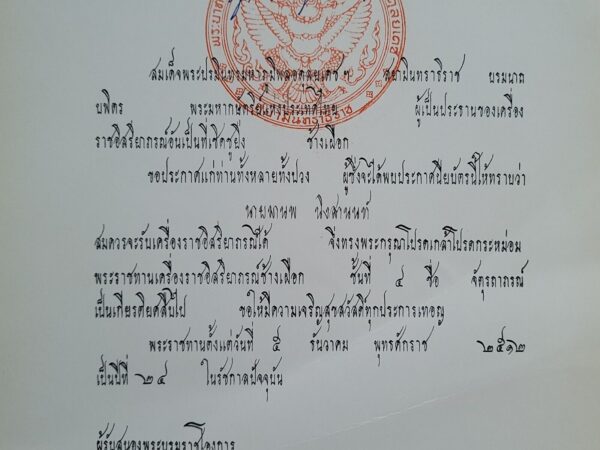 สมเด็จพระปรมินทรมหาภูมิพลอดุลยเดช ฯ สยามินทราธิราช บรมนาถ
บพิตร พระมหากษัตริย์แห่งประเทศไทย ผู้เป็นประธานของเครื่อง
ราชอิสริยาภรณ์อันเป็นที่เชิดชูยิ่ง ช้างเผือก
ขอประกาศแก่ท่านทั้งหลายทั้งปวง ผู้ซึ่งจะได้พบประกาศนียบัตรนี้ให้ทราบว่า
นายมานพ นิงสานนท์
สมควรจะรับเครื่องราชอิสริยาภรณ์ได้ จึ่งทรงพระกรุณาโปรดเกล้าโปรดกระหม่อม
พระราชทานเครื่องราชอิสริยาภรณ์ช้างเผือก ชั้นที่ ๔ ชื่อ จัตุรถาภรณ์
เป็นเกียรติยศสืบไป ขอให้มีความเจริญสุขสวัสดิ์ทุกประการเทอญ
พระราชทานตั้งแต่วันที่ ๕ ธันวาคม พุทธศักราช ๒๕๑๒
เป็นปีที่ ๒๔ ในรัชกาลปัจจุบัน
ผู้รับสนองพระบรมราชโองการ